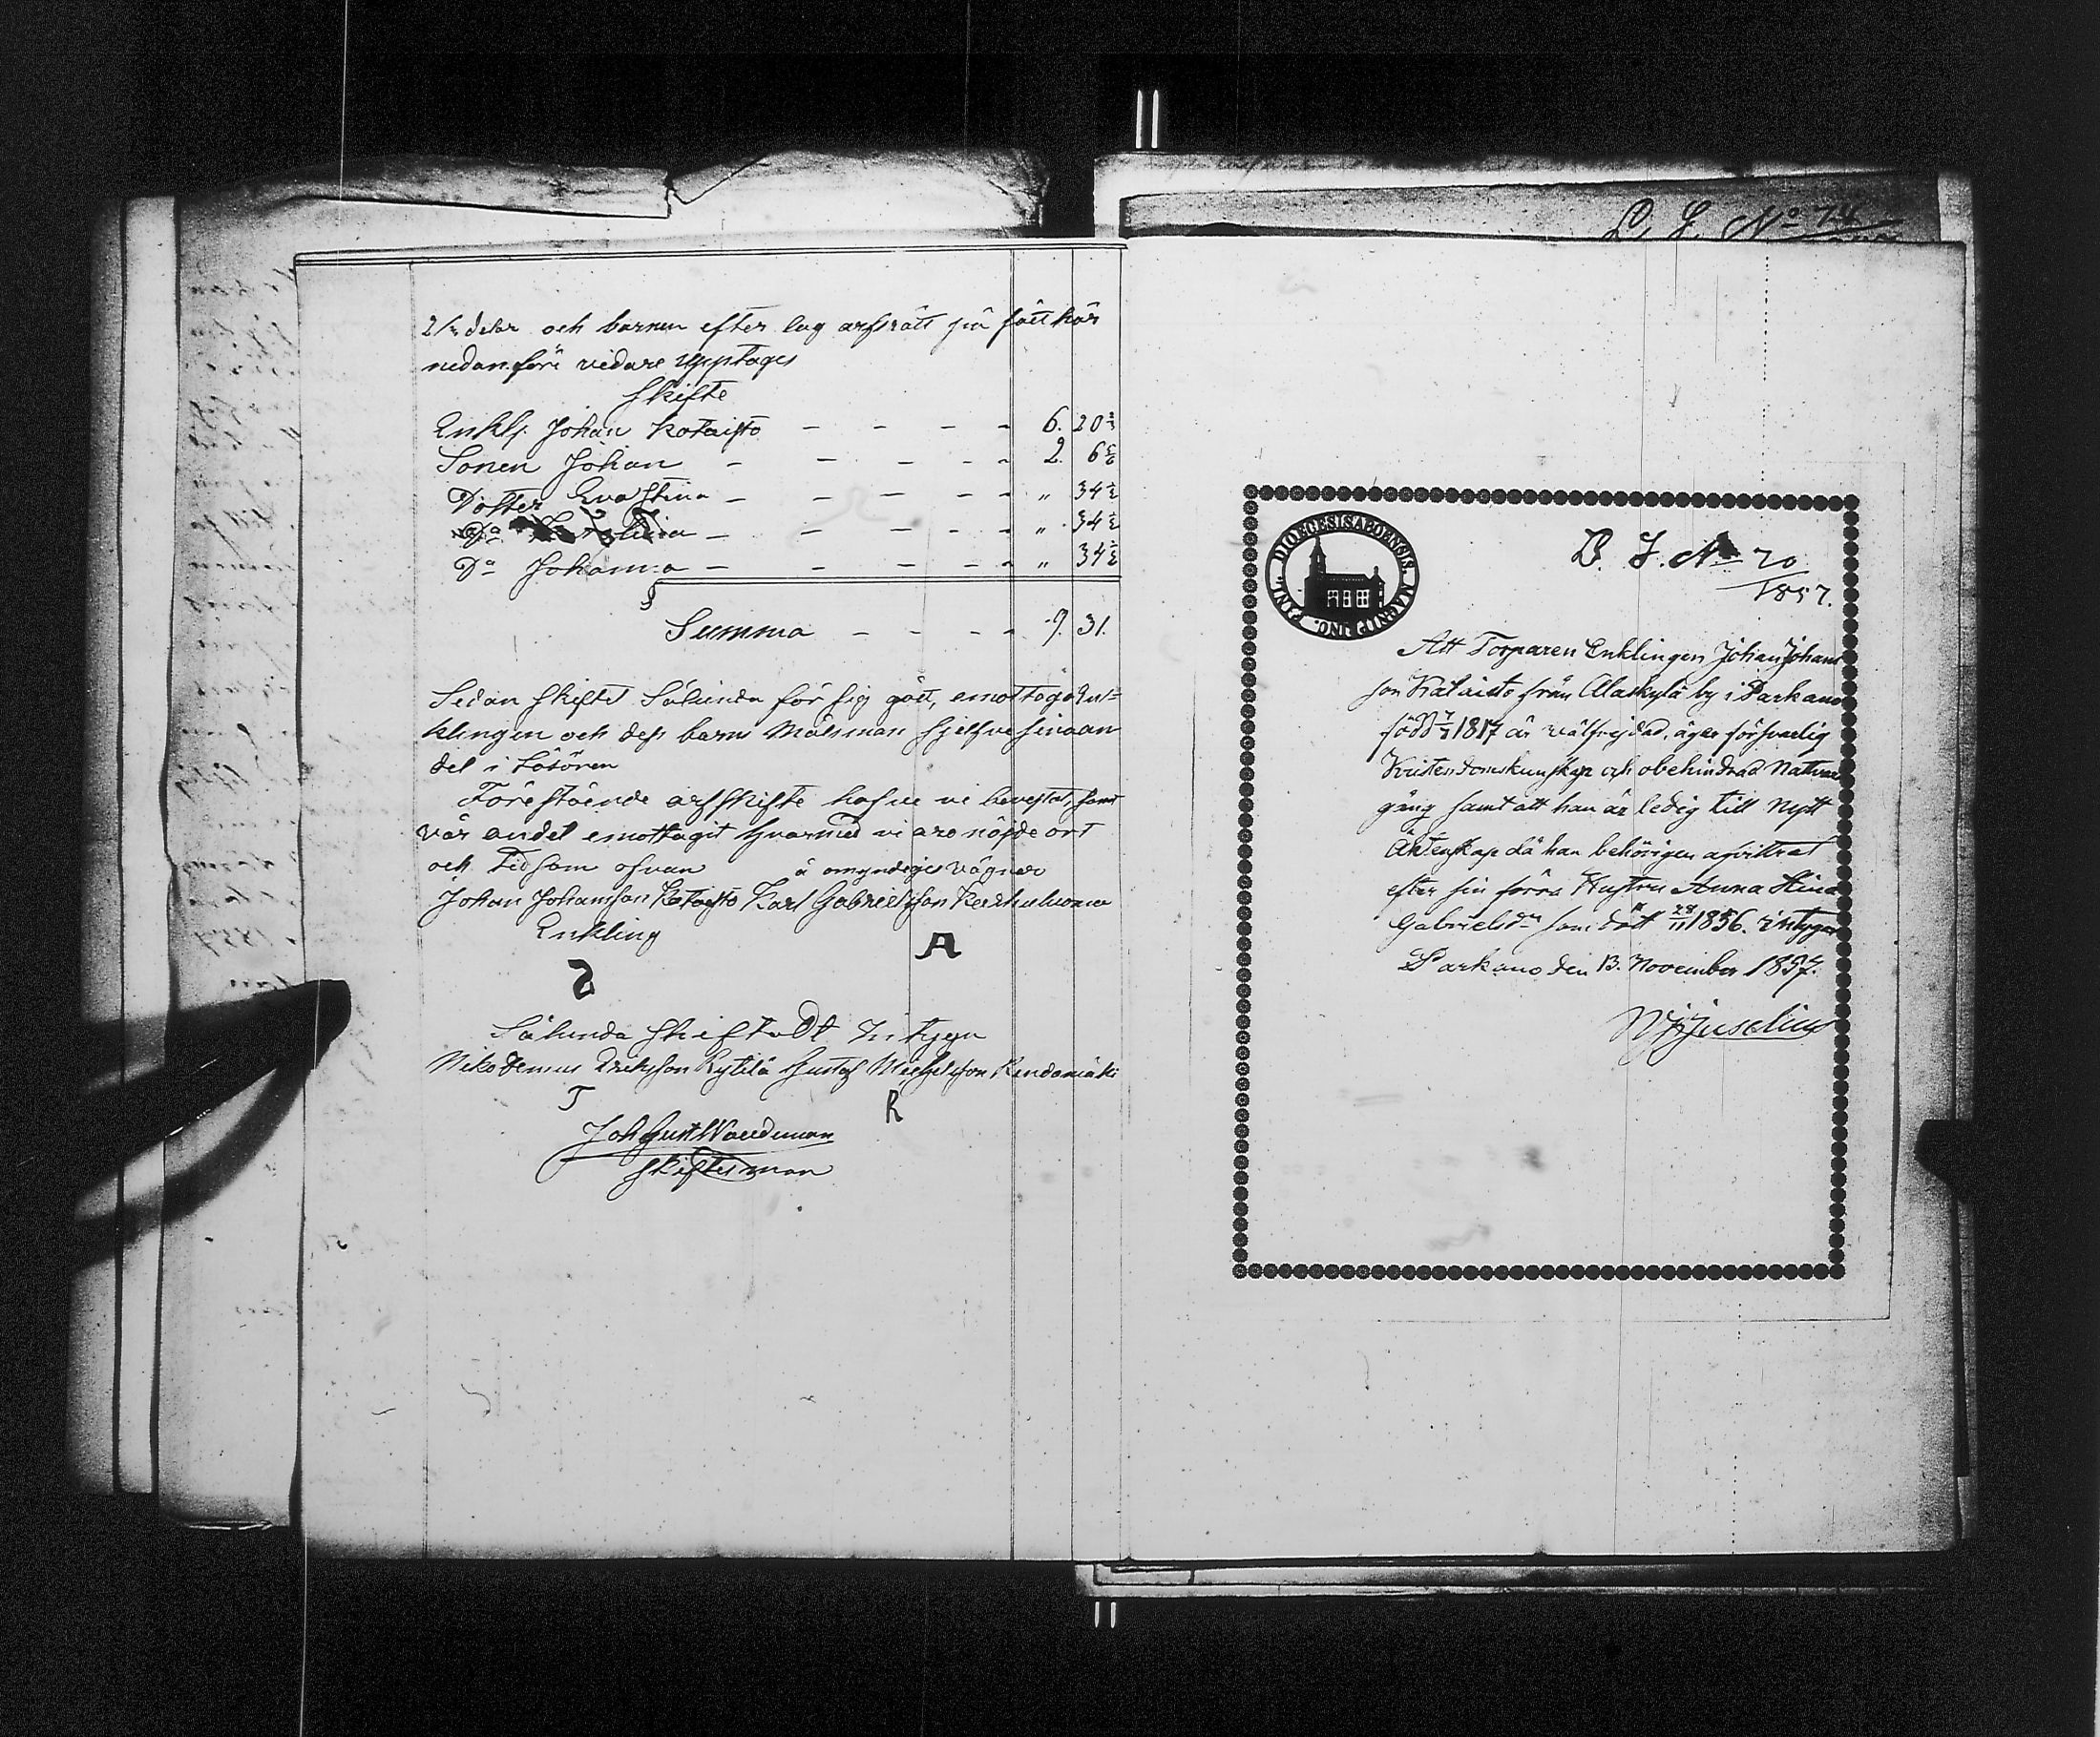 2/3 delar och barnen efter lag arfsrätt på sätt här
nedanföre vidare upptages
Skifte
Enkl. Johan Kotaisto - - - - 6. 20 2/3
Sonen Johan - - - - 2. 6 5/6
Dotter Eva Stina - - - - " 34 1/2
Do - - - - " 34 1/2
Do Johanna - - - - " 34 1/2
Summa - - - - 9. 31.
Sedan skiftet Sålunda för sig gått, emottogo En=
klingen och dess barns Målsman sjelfve sina an
del i Lösören
Förestående arfskifte hafve vi bevistat, samt
vår andel emottagit hvarmed vi äro nöjde ort
och tid som ofvan
å omyndiges vägnar
Johan Johansson Kotaisto Karl Gabrielsson
Enkling
A
Sålunda skiftadt Intyga
Nikodemus Eriksson Kytölä Gustaf Michelsson
T R
Joh Gust Wandman
Skiftesman
L. S. No 74
L. S. No 70
1857.
DIOECESIS ABOENSIS
Att Torparen Enklingen Johan Johans
son Kataisto från Alaskylä by i Parkano
född 1817 är välfrejdad, äger försvarlig
Kristendomskunskap och obehindrad Nattvards
gång samt att han är ledig till nytt
Äktenskap då han behörigen afvittrat
efter sin förra Hustru Anna Stina
Gabrielsdr som dött 28/11 1856. intygar
Parkano den 13. November 1857.